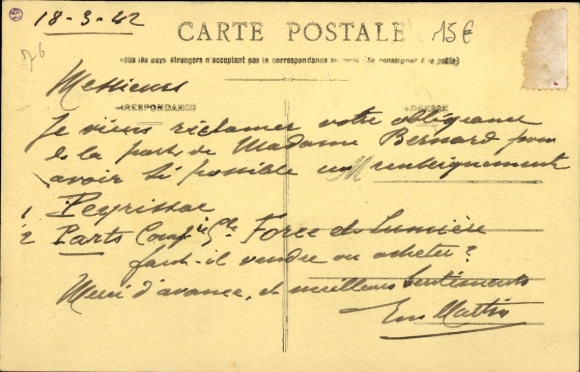 18-3-42
CARTE POSTALE
15€
76
Tous les pays étrangers n'acceptent pas la correspondance au recto (Se renseigner à la poste)
Messieurs
CORRESPONDANCE
ADRESSE
Je viens réclamer votre obligeance
de la part de Madame Bernard pour
avoir si possible un renseignement
1 Peyrissac
2 Parts Comp. Gle Force et Lumière
faut-il vendre ou acheter ?
Merci d'avance, et meilleurs sentiments
Em Martin